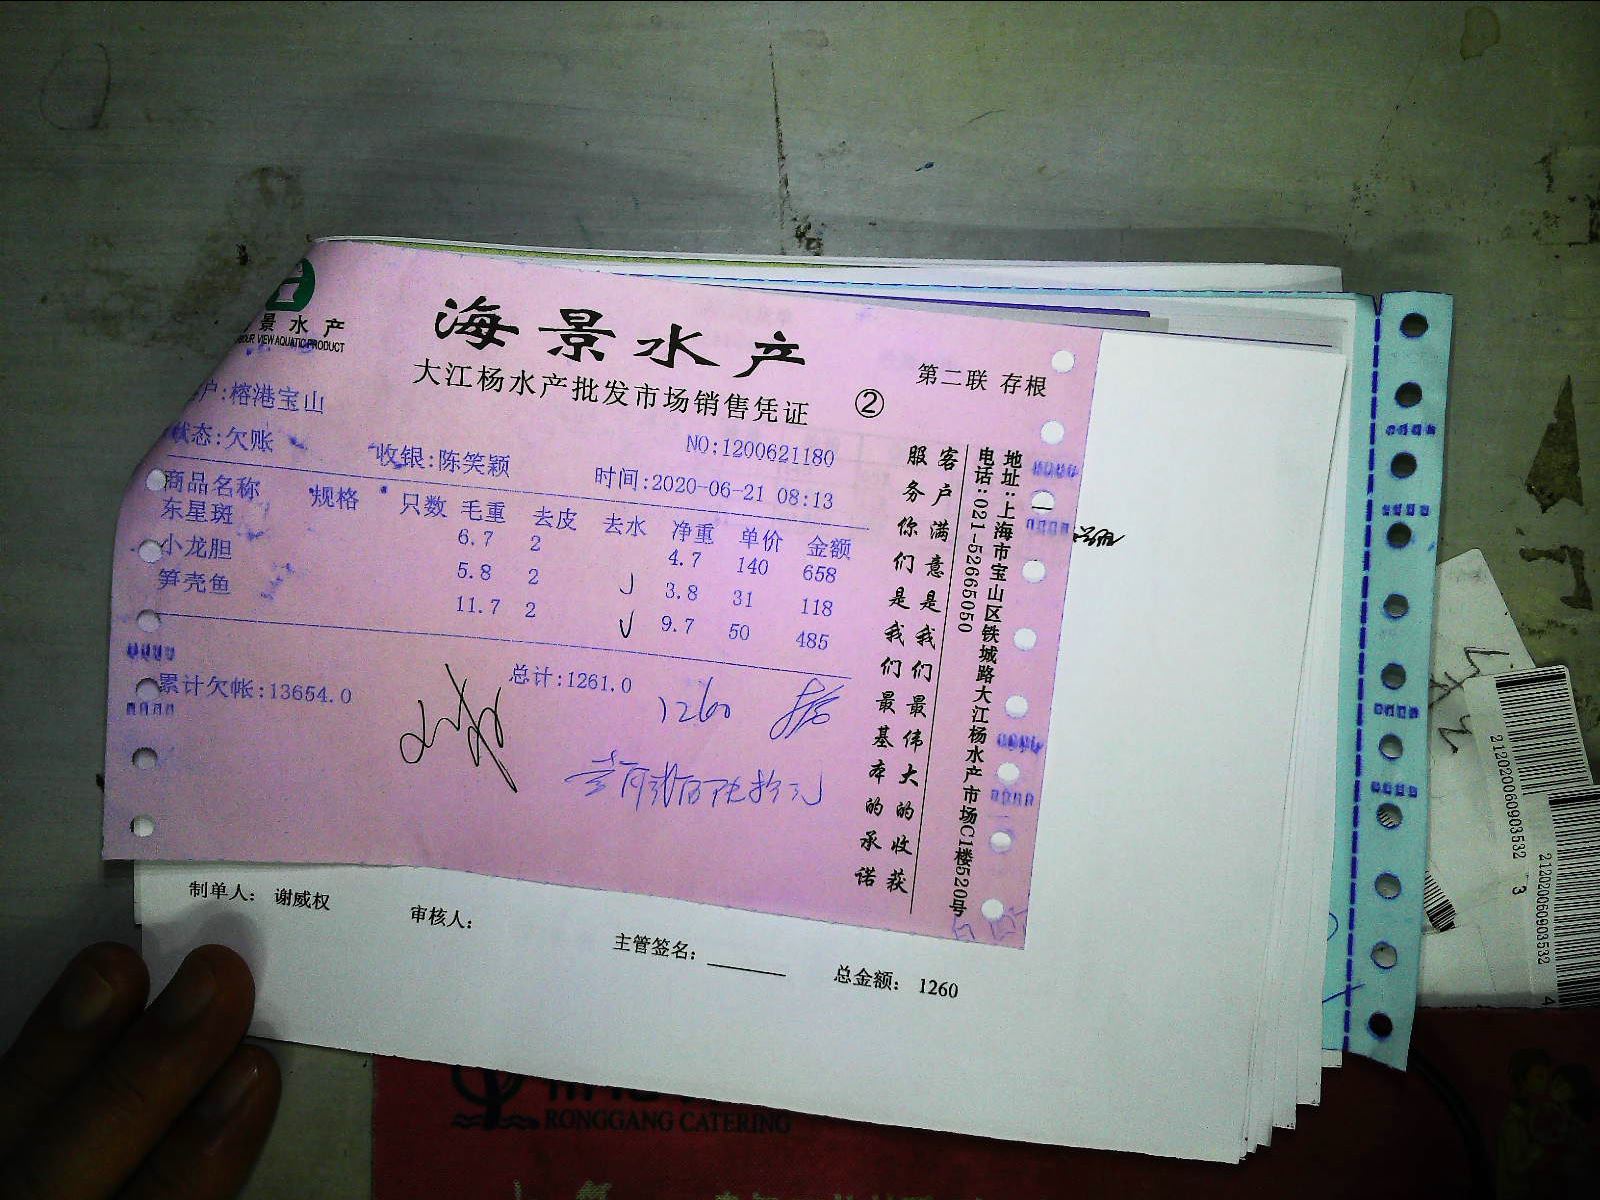 景水产
VIEW AQUATIC PRODUCT
海景水产
大江杨水产批发市场销售凭证
②
第二联 存根
户:榕港宝山
状态:欠账
收银:陈笑颖
NO:1200621180
时间:2020-06-21 08:13
商品名称 规格 只数 毛重 去皮 去水 净重 单价 金额
东星斑 6.7 2 4.7 140 658
小龙胆 5.8 2 3.8 31 118
笋壳鱼 11.7 2 9.7 50 485
累计欠帐:13654.0
总计:1261.0
1260
客户满意是我们最伟大的收获
服务你们是我们最基本的承诺
地址:上海市宝山区铁城路大江杨水产市场C1楼520号
电话:021-52665050
制单人: 谢威权
审核人:
主管签名:
总金额: 1260
212020060903532 3
212020060903532 4
RONGGANG CATERING